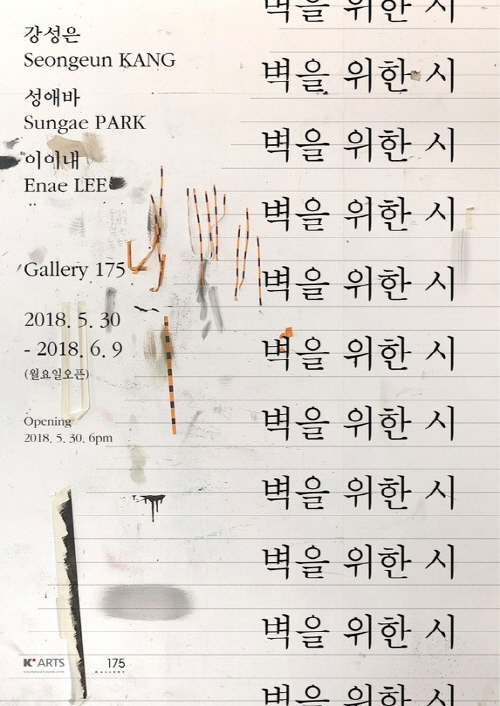 강성은
Seongeun KANG
성애바
Sungae PARK
이이내
Enae LEE
Gallery 175
2018. 5. 30
- 2018. 6. 9
(월요일오픈)
Opening
2018. 5. 30. 6pm
K*ARTS
175
GALLERY
벽을 위한 시
벽을 위한 시
벽을 위한 시
벽을 위한 시
벽을 위한 시
벽을 위한 시
벽을 위한 시
벽을 위한 시
벽을 위한 시
벽을 위한 시
벽을 위한 시